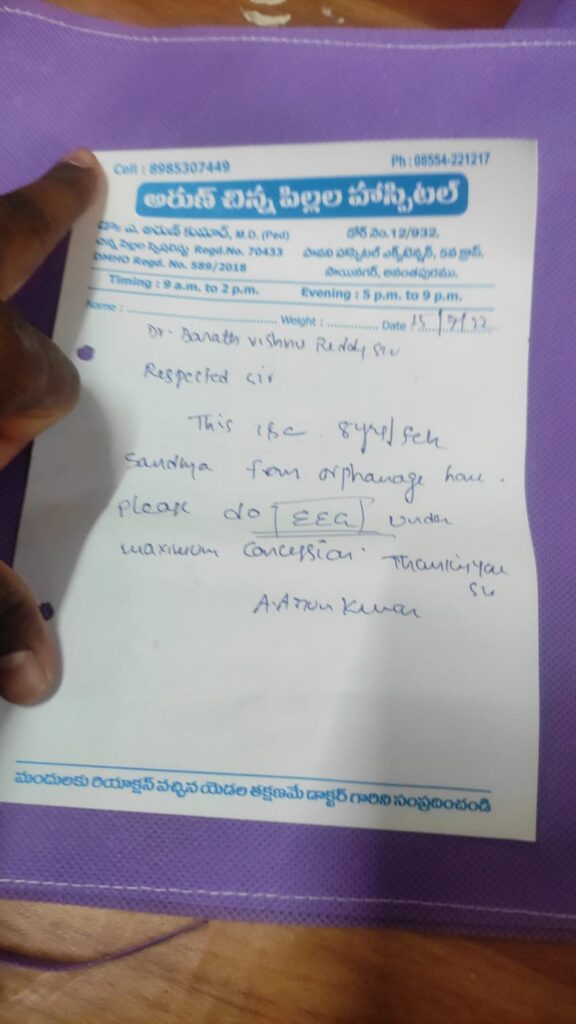 Cell : 8985307449
Ph : 08554-221217
అరుణ్ చిన్న పిల్లల హాస్పిటల్
డా॥ ఎ. అరుణ్ కుమార్, M.D. (Ped)
చిన్న పిల్లల స్పెషలిస్టు Regd.No. 70433
DMHO Regd. No. 589/2018
డోర్ నెం.12/932,
పావని హాస్పిటల్ ఎక్స్‌టెన్షన్, 5వ క్రాస్,
సాయినగర్, అనంతపురము.
Timing : 9 a.m. to 2 p.m.
Evening : 5 p.m. to 9 p.m.
Name : Weight : Date /22
Dr. Barath Vishnu Reddy Sir
Respected sir
This is a 8yrs/Fch
Sandhya from orphanage home.
please do EEG under
maximum Concession. Thanking you
Sir
A. Arun Kumar
మందులకు రియాక్షన్ వచ్చిన యెడల తక్షణమే డాక్టర్ గారిని సంప్రదించండి